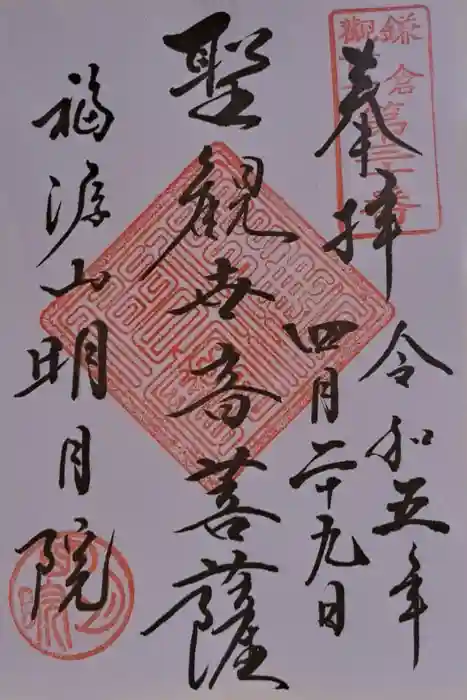 奉拝
令和五年
四月二十九日
聖観世音菩薩
福源山明月院
鎌倉第三十番